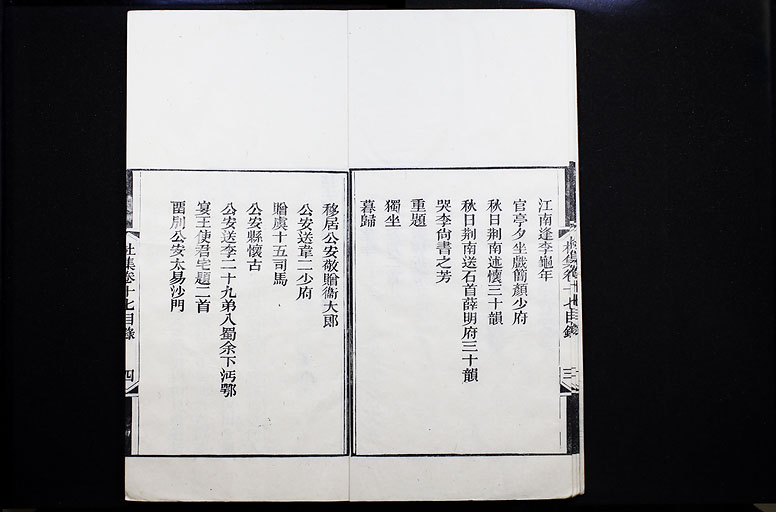 杜集卷十七目錄
三
江南逢李龜年
官亭夕坐戲簡顏少府
秋日荆南述懷三十韻
秋日荆南送石首薛明府三十韻
哭李尚書之芳
重題
獨坐
暮歸
移居公安敬贈衞大郎
公安送韋二少府
贈虞十五司馬
公安縣懷古
公安送李二十九弟入蜀余下沔鄂
宴王使君宅題二首
留別公安太易沙門
杜集卷十七目錄
四